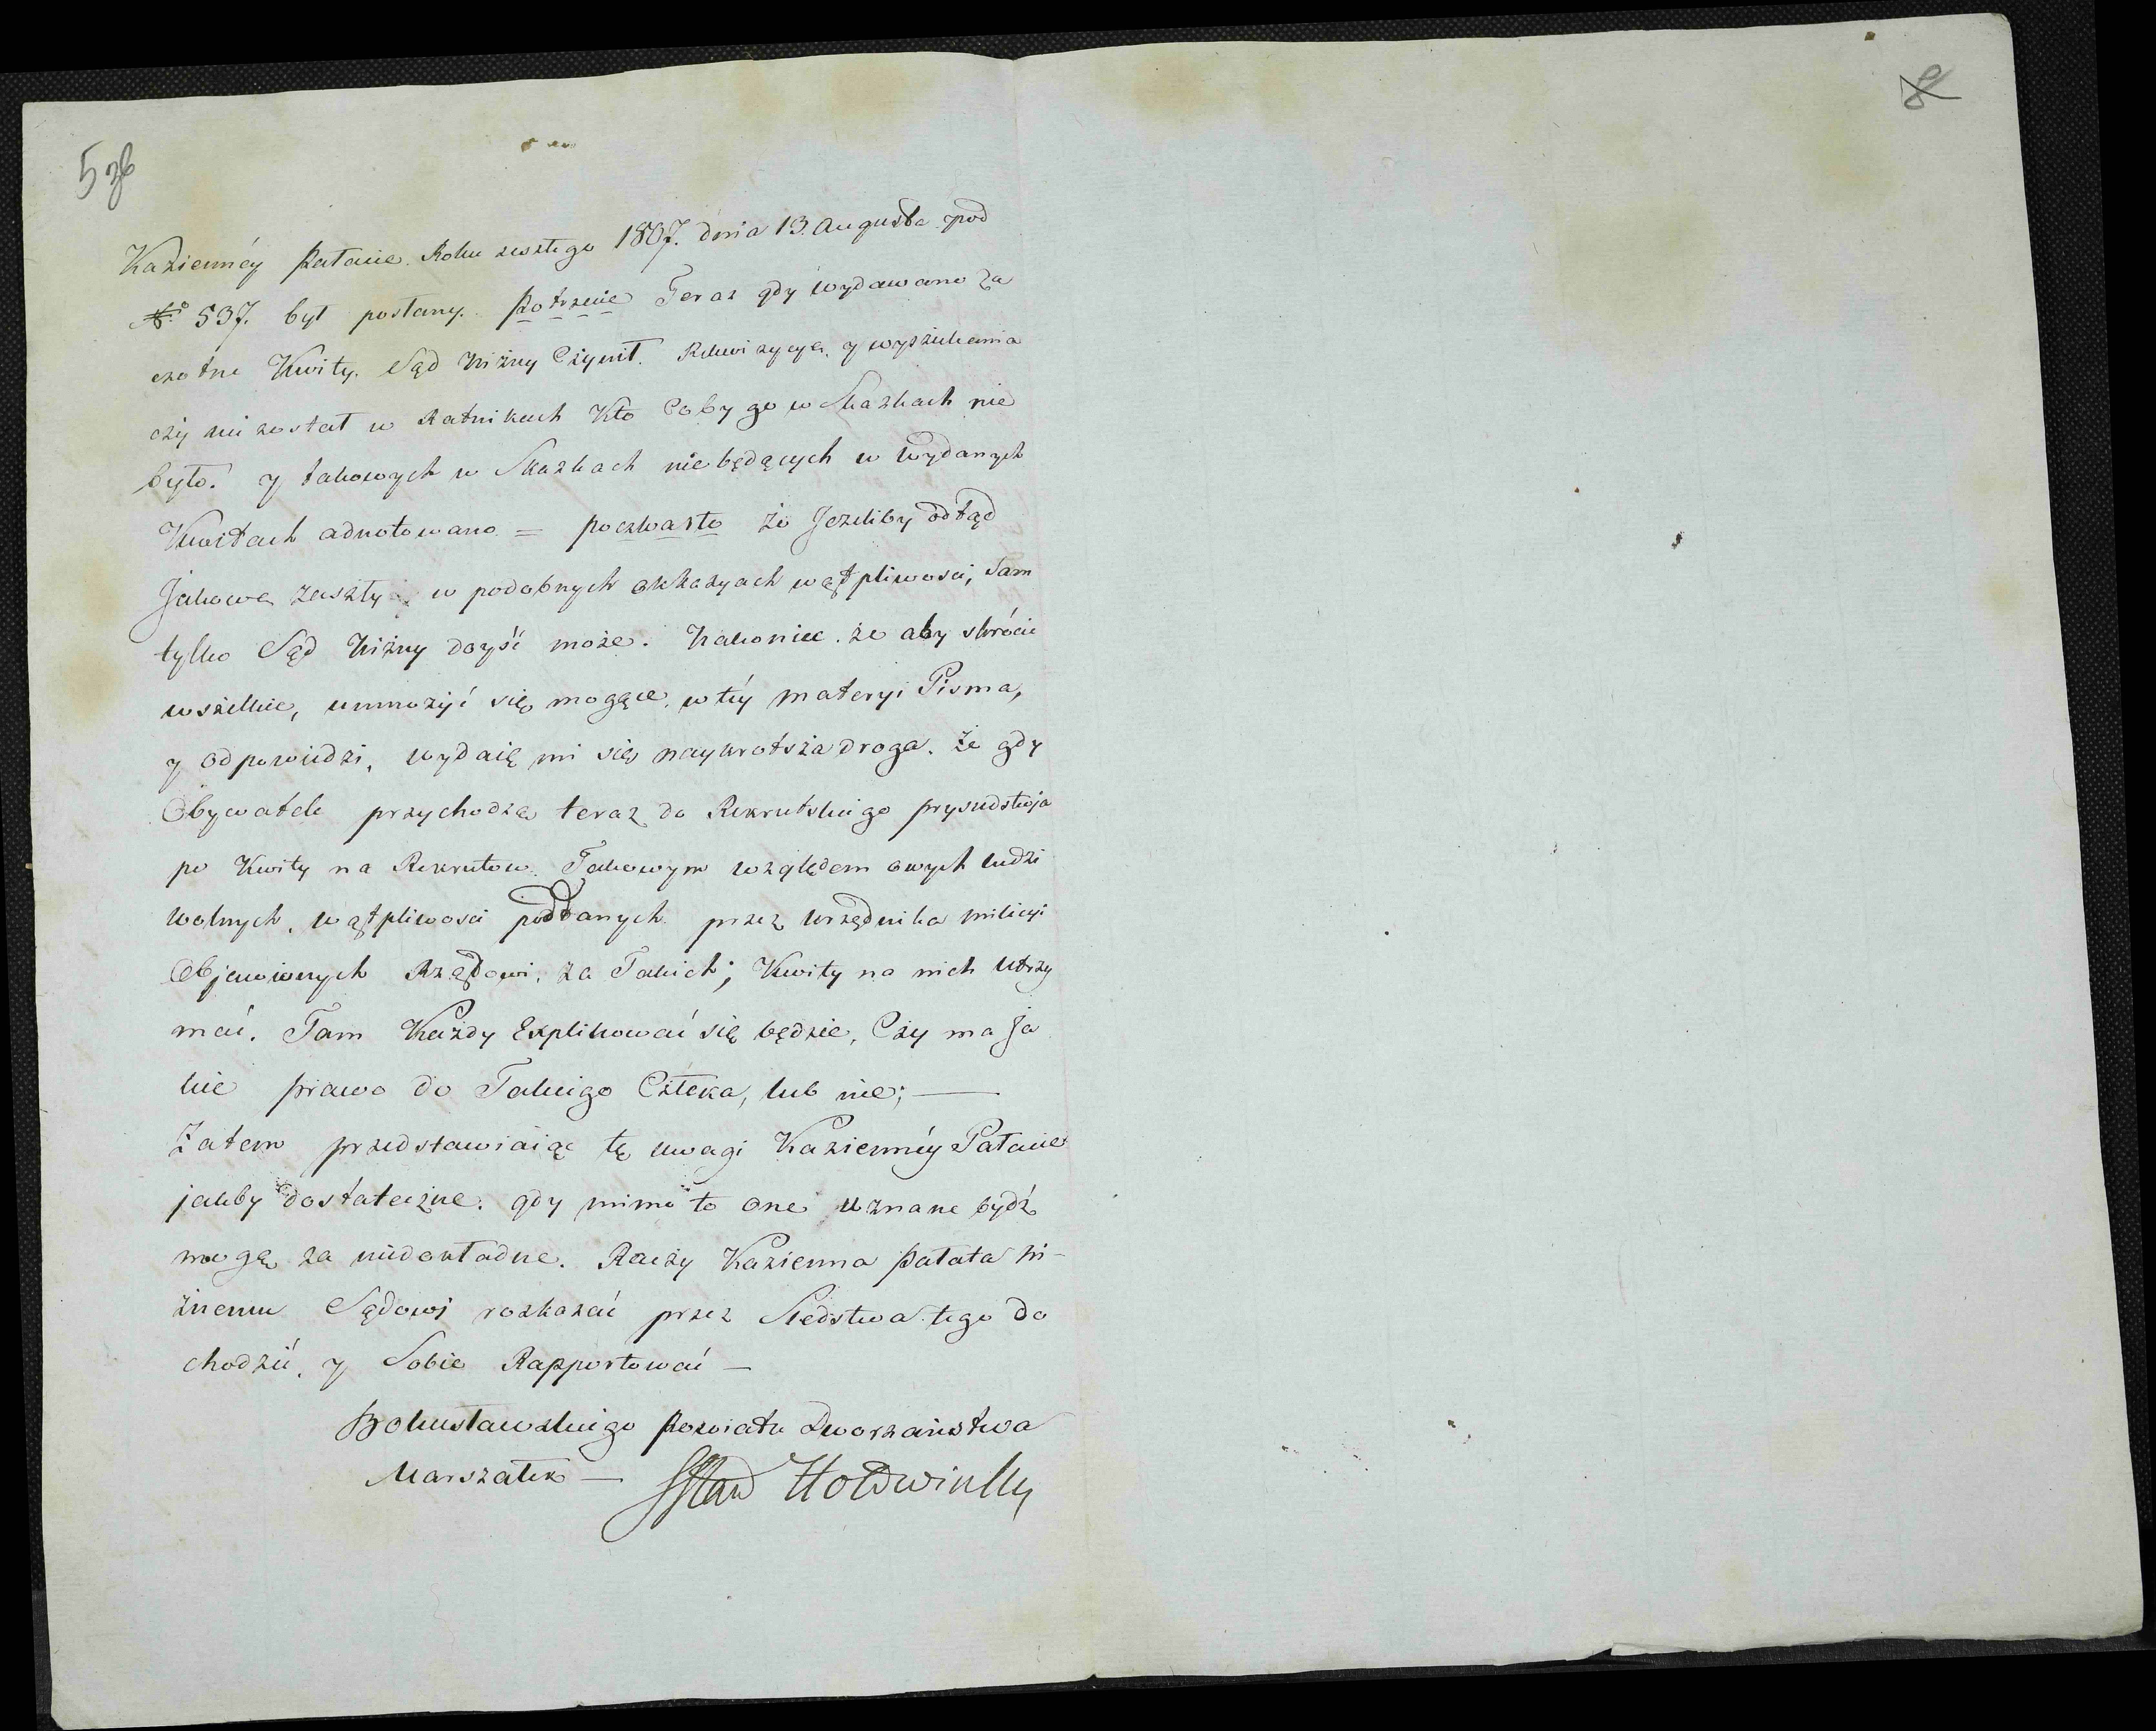 5 об
8
Kazienney Pałacie Roku zeszłego 1807. dnia 13. Augusta pod
№ 537. był posłany. Potrzecie Teraz gdy wydawano Za
czotne Kwity. Sąd Niżny Czynił Rekwizycyą, y wyszukania
czy nie został w Ratnikach Kto Coby go w Skazkach nie
było. y takowych w Skazkach niebędących w wydanych
Kwitach adnotowano = poczwarto że Jeżeliby odtąd
Jakowe zaszły w podobnych okkazyach wątpliwosci, Sam
tylko Sąd Niżny doyść może. Nakoniec że aby skrócić
wszelkie, umnożyć się mogące w tey materyi Pisma,
y odpowiedzi, wydaię mi się naykrotsza droga. że gdy
Obywatele przychodzą teraz do Rekrutskiego prysudstwja
po Kwity na Rekrutow. Takowym względem owych ludzi
wolnych, wątpliwosci poddanych przez urzędnika milicyi
Objawionych Rządowi, za Takich; Kwity na nich utrzy
mać. Tam Każdy Explikować się będzie, Czy ma Ja
kie prawo do Takiego Człeka, lub nie; —
Zatem przedstawiaiąc tę uwagi Kazienney Pałacie
jakby dostateczne. gdy mimo to one uznane bydź
mogą za niedokładne. Raczy Kazienna Pałata Ni-
żnemu Sądowi rozkazać przez Sledstwa tego do
chodzić, y Sobie Rapportować —
Bohusławskiego Powiatu Dworzaństwa
Marszałek — Hołowinsky